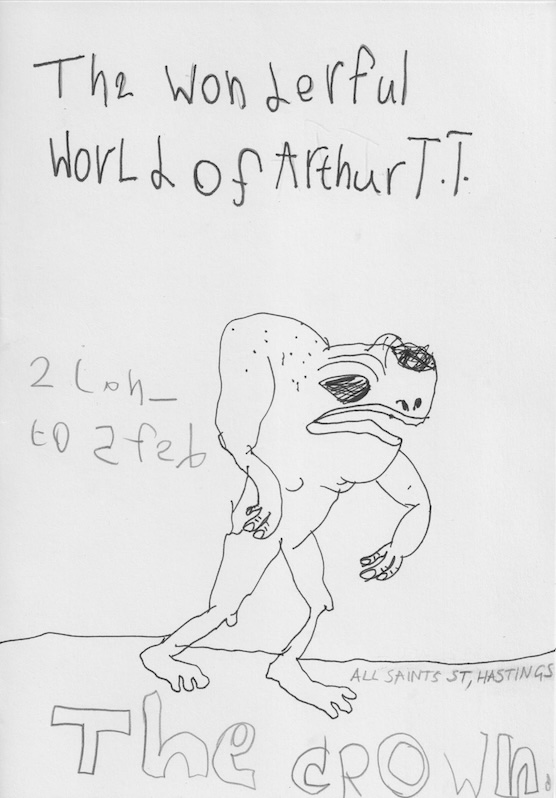 The Wonderful
World of Arthur T.T.
2
to 2 feb
ALL SAINTS ST, HASTINGS
The CROWN.